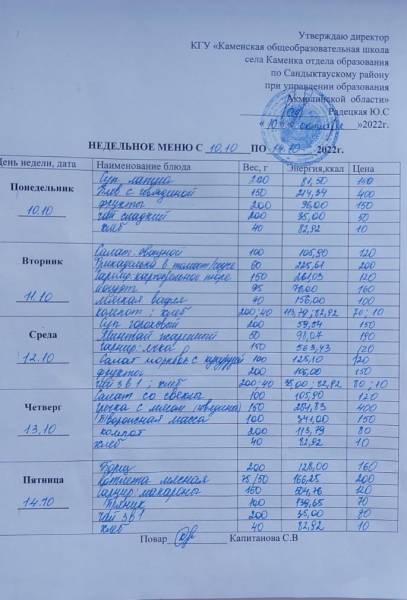 Утверждаю директор
КГУ «Каменская общеобразовательная школа
села Каменка отдела образования
по Сандыктаускому району
при управлении образования
Акмолинской области»
Радецкая Ю.С
«10» октября »2022г.
НЕДЕЛЬНОЕ МЕНЮ С 10.10 ПО 14.10 2022г.
День недели, дата Наименование блюда Вес, г Энергия,ккал Цена
Понедельник 10.10
Суп лапша 200 81,50 160
Плов с говядиной 150 214,34 400
фрукты 200 96,00 150
чай сладкий 200 35,00 50
хлеб 40 82,92 10
Вторник 11.10
Салат овощной 100 105,90 120
Фрикадельки в томат. 60 225,61 200
Гарнир картофельное пюре 150 120
Йогурт 95 78,00 160
40 156,00 100
компот ; хлеб 200; 40 113,79; 82,92 80; 10
Среда 12.10
Суп гороховый 200 150
Минтай жаренный 50 98,07 190
Гарнир 150 563,43 120
Салат морковь с кукурузой 100 125,10 120
фрукты 200 150
Чай 3 в 1 ; хлеб 200; 40 35,00; 82,92 80; 10
Четверг 13.10
Салат со свеклы 100 105,90 120
Гречка с мясом (говядина) 150 251,83 400
Творожная масса 100 341,00 150
компот 200 113,79 80
хлеб 40 82,92 10
Пятница 14.10
Борщ 200 128,00 160
Котлета мясная 75/50 166,25 200
Гарнир макароны 150 120
Пряник 100 139,65 70
Чай 3 в 1 200 35,00 80
хлеб 40 82,92 10
Повар Капитанова С.В